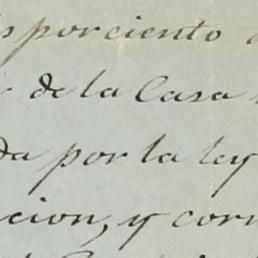 s porciento
de la Casa
da por la ley
cion, y cor